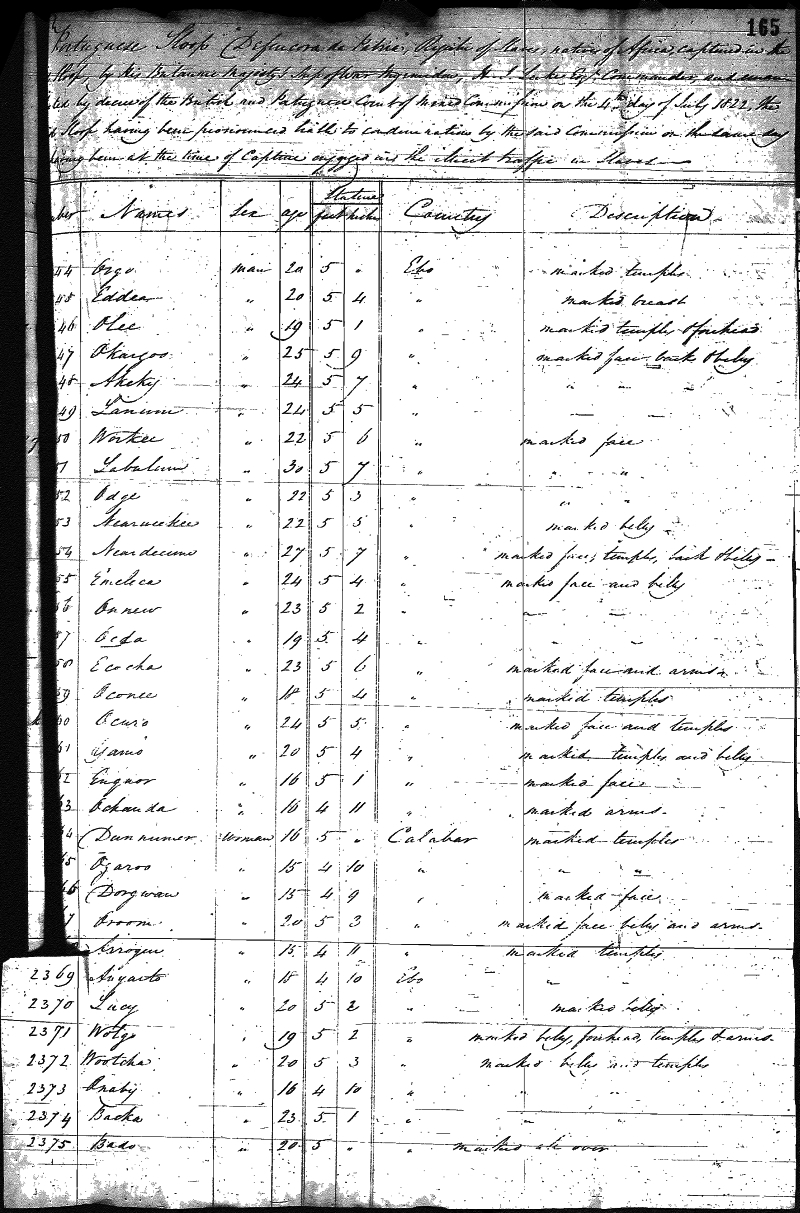 165
Portuguese Sloop "Defensora da Patria", Register of Slaves, natives of Africa, captured in the
Sloop, by His Britannic Majesty's Ship of War H. J. Leeke Esqr. Commander, and
by decree of the British and Portuguese Court of Mixed Commission on the 4th day of July 1822, the
Sloop having been pronounced liable to condemnation by the said Commission on the same day
having been at the time of Capture engaged in the illicit traffic in Slaves
Stature
Names Sex age feet inches Country Description
44 Orgo man 20 5 " Ebo marked temples
45 Eddear " 20 5 4 " marked breast
46 Olee " 19 5 1 " marked temples & forehead
47 Okargos " 25 5 9 " marked face, back & belly
48 Akeky " 24 5 7 " " "
49 Lanum " 24 5 5 " " "
50 Workee " 22 5 6 " marked face
51 Labalum " 30 5 7 " " "
52 Odge " 22 5 3 " " "
53 Nearweekee " 22 5 5 " marked belly
54 Neardecum " 27 5 7 " marked face, temples, back & belly
55 Emeleca " 24 5 4 " marked face and belly
56 Onnew " 23 5 2 " " "
57 Ocda " 19 5 4 " " "
58 Ecocha " 23 5 6 " marked face and arms
59 Oconee " 18 5 4 " marked temples
60 Ocuro " 24 5 5 " marked face and temples
61 Yamo " 20 5 4 " marked temples and belly
62 Enguor " 16 5 1 " marked face
63 Ochanda " 16 4 11 " marked arms
64 Dunnumer Woman 16 5 " Calabar marked temples
65 Ogaroo " 15 4 10 " " "
66 Dorgwan " 15 4 9 " marked face
67 Oroom " 20 5 3 " marked face belly and arms
Arrogen " 15 4 11 " marked temples
2369 Auyarto " 15 4 10 Ebo " "
2370 Lucy " 20 5 2 " marked belly
2371 Wotgo " 19 5 2 " marked belly, forehead, temples & arms
2372 Wootcha " 20 5 3 " marked belly and temples
2373 Onaby " 16 4 10 " " "
2374 Backa " 23 5 1 " " "
2375 Bado " 20 5 " " marked all over